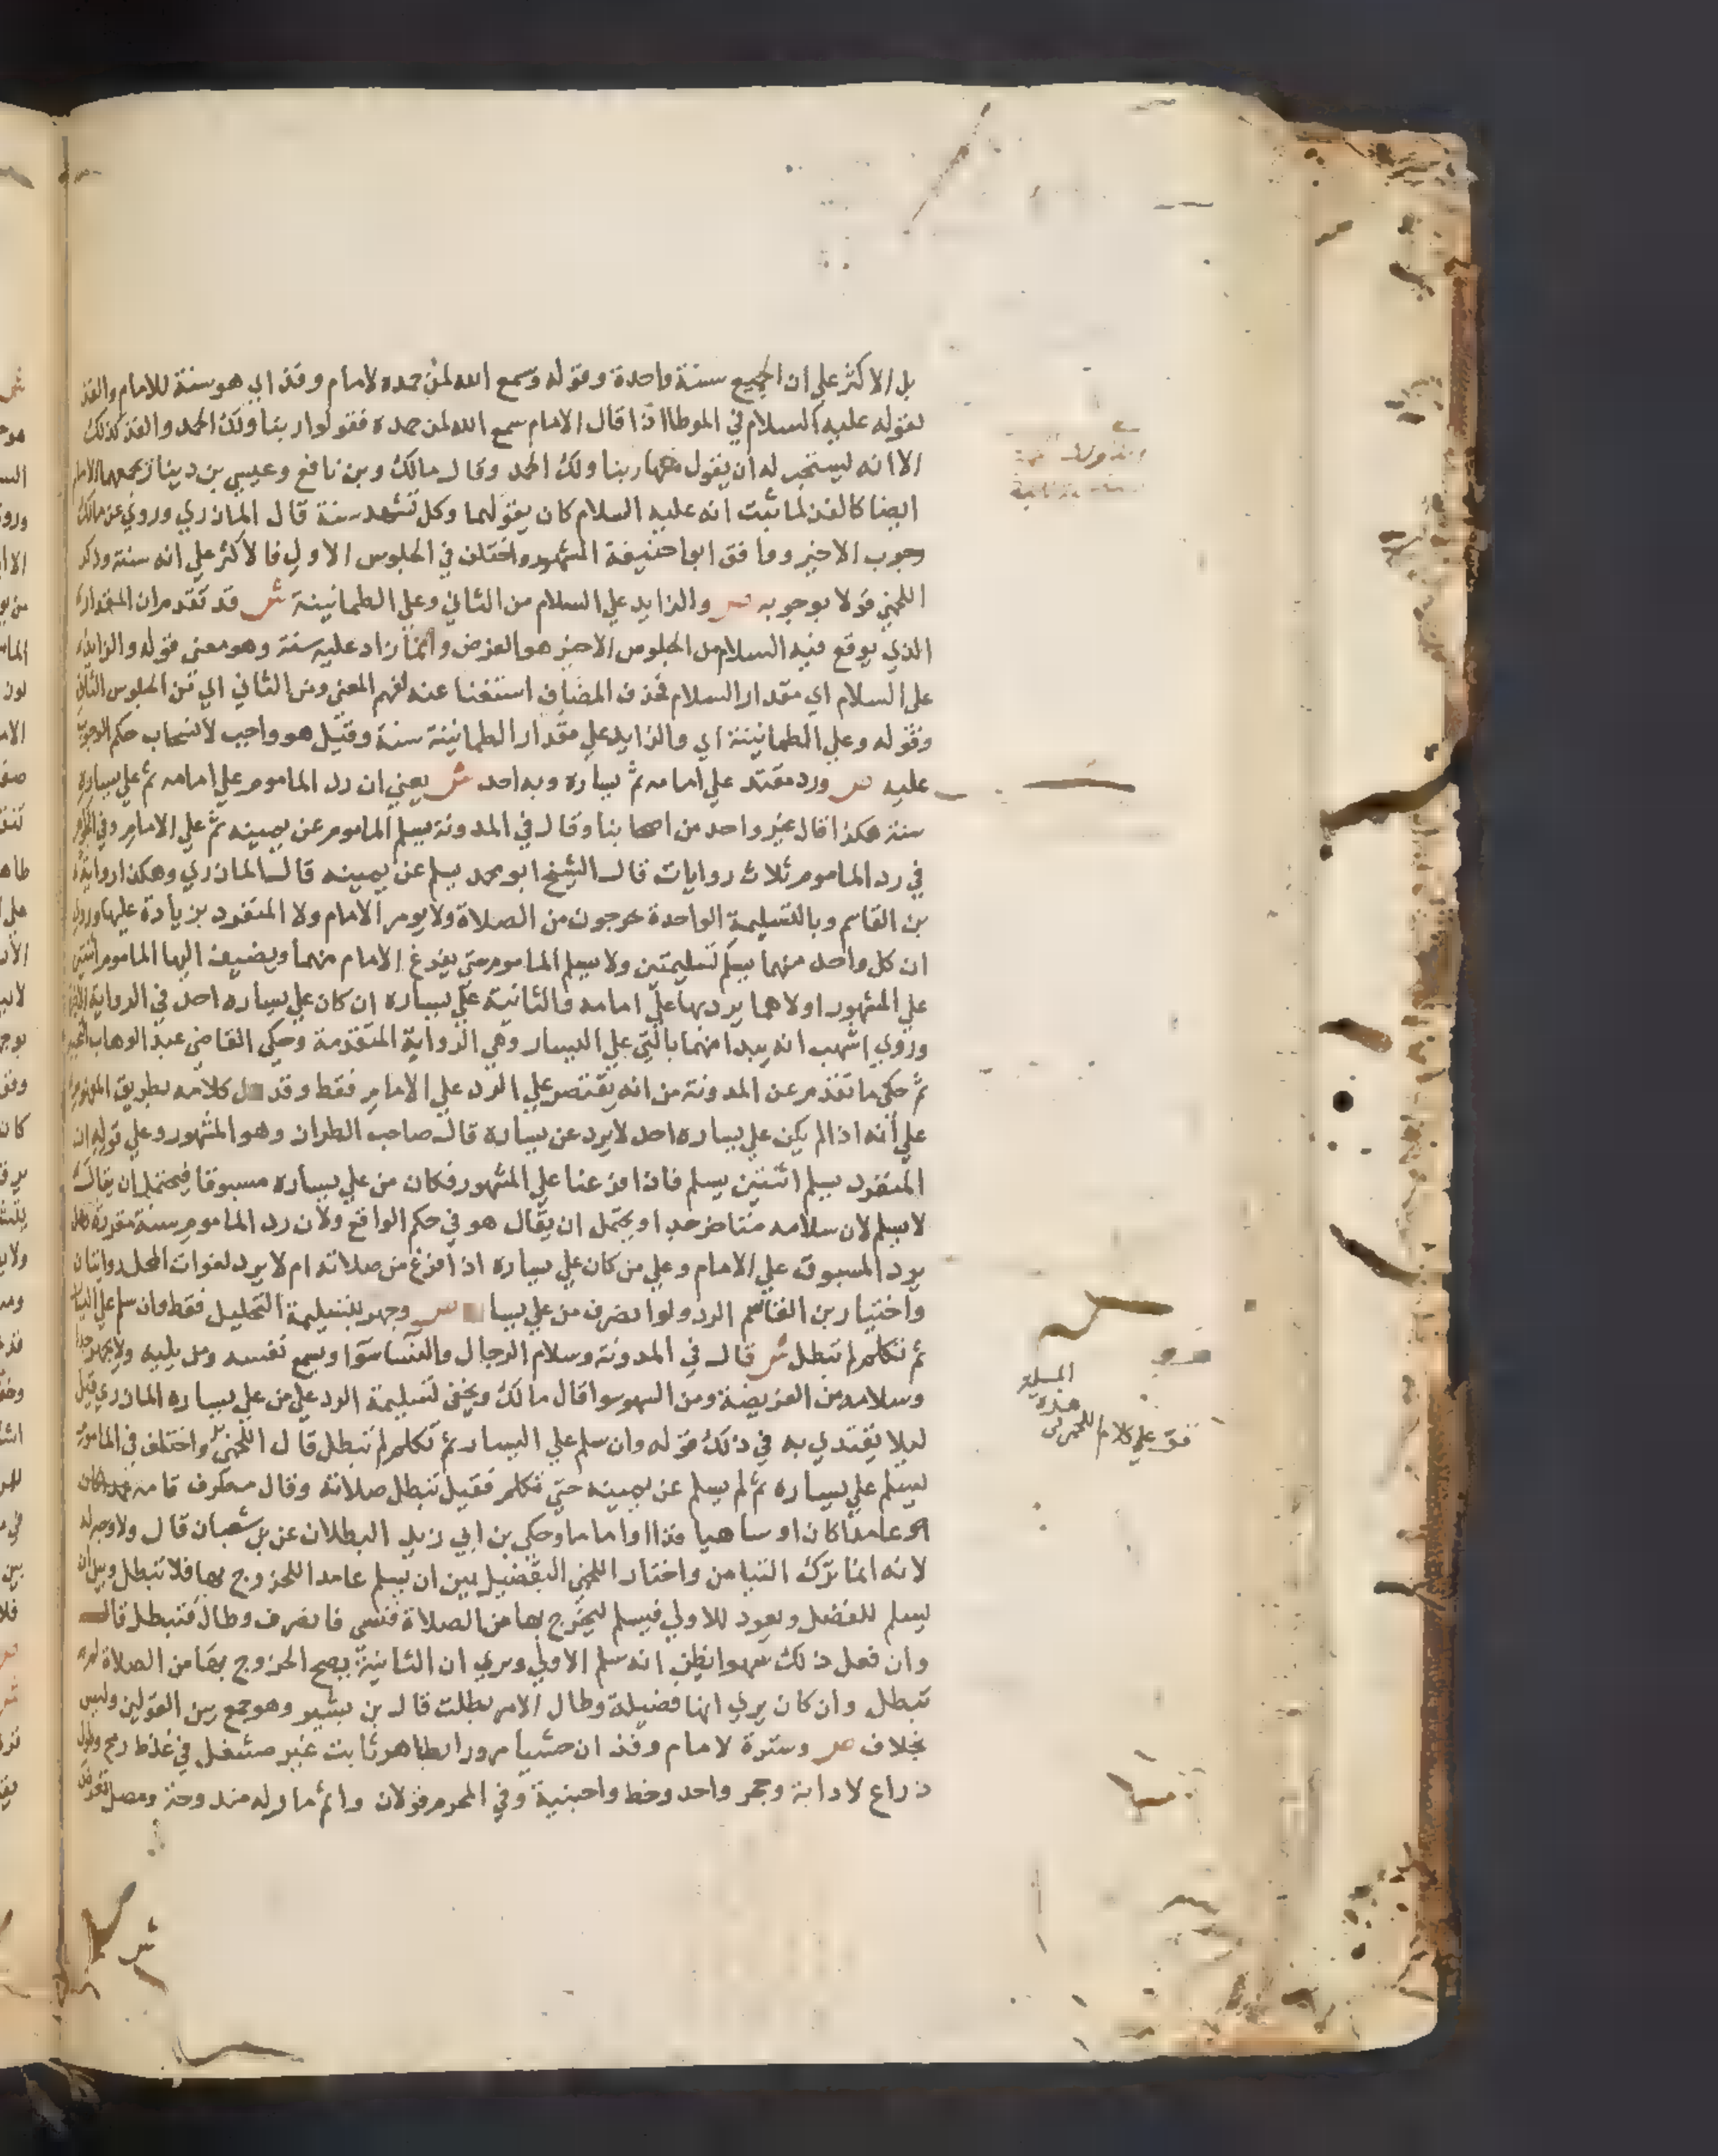 بل الاكثر علي ان الجميع سنة واحدة وقوله وسمع الله لمن حمده لامام وفذ اي هو سنة للامام والفذ
لقوله عليه السلام في الموطا اذا قال الامام سمع الله لمن حمده فقولوا ربنا ولك الحمد والفذ كذلك
الا انه يستحب له ان يقول معها ربنا ولك الحمد وقال مالك وبن نافع وعيسي بن دينار يجمعهما الامام
ايضا كالفذ لما ثبت انه عليه السلام كان يقولهما وكل تشهد سنة قال المازري وروي عن مالك
وجوب الاخير ووافق ابوا حنيفة المشهور واختلف في الجلوس الاول فالاكثر علي انه سنة وذكر
اللخمي قولا بوجوبه ص والزايد علي السلام من الثاني وعلي الطمانينة ش قد تقدم ان المقدار
الذي يوقع فيه السلام من الجلوس الاخير هو الفرض وانما زاد عليه سنة وهو معني قوله والزايد
علي السلام اي مقدار السلام فحذف المضاف استغنا عنه لفهم المعني ومن الثاني اي من الجلوس الثاني
وقوله وعلي الطمانينة اي والزايد علي مقدار الطمانينة سنة وقيل هو واجب لانسحاب حكم الوجوب
عليه ص ورد مقتد علي امامه ثم يساره وبه احد ش يعني ان رد الماموم علي امامه ثم علي يساره
سنة هكذا قال غير واحد من اصحابنا وقال في المدونة يسلم الماموم عن يمينه ثم علي الامام وفي
في رد الماموم ثلاث روايات قال الشيخ ابو محمد يسلم عن يمينه قال المازري وهكذا رواية
بن القاسم وبالتسليمة الواحدة خرجون من الصلاة ولا يومر الامام ولا المنفرد بزيادة عليها وروي
ان كل واحد منهما يسلم تسليمتين ولا يسلم الماموم حتي يفرغ الامام منهما ويضيف اليها الماموم اثنتين
علي المشهور اولاهما يرد بها علي امامه والثانية علي يساره ان كان علي يساره احد في الرواية
وروي اشهب انه يبدا منهما بالتي علي اليسار وهي الرواية المتقدمة وحكي القاضي عبد الوهاب
ثم حكي ما تقدم عن المدونة من انه يقتصر علي الرد علي الامام فقط وقد دل كلامه بطريق المفهوم
علي انه اذا لم يكن علي يساره احد لا يرد عن يساره قال صاحب الطراز وهو المشهور وعلي قوله ان
المنفرد يسلم اثنتين يسلم فاذا فرعنا علي المشهور فكان من علي يساره مسبوقا فيحتمل ان يقال
لا يسلم لان سلامه متاخر جدا ويحتمل ان يقال هو في حكم الواقع ولان رد الماموم سنة
يرد المسبوق علي الامام وعلي من كان علي يساره اذا فرغ من صلاته ام لا يرد لفوات المحل روايتان
واختيار بن القاسم الرد ولو انصرف من علي يسا ص وجهر بتسليمة التحليل فقط وان سلم علي اليسار
ثم تكلم لم تبطل ش قال في المدونة وسلام الرجال والنسا سوا ويسمع نفسه ومن يليه ولا يجهر جدا
وسلامه من الفريضة ومن السهو سوا قال مالك ويخفي تسليمة الرد علي من علي يساره المازري قيل
ليلا يقتدي به في ذلك قوله وان سلم علي اليسار ثم تكلم لم تبطل قال اللخمي واختلف في الماموم
يسلم علي يساره ثم لم يسلم عن يمينه حتي تكلم فقيل تبطل صلاته وقال مطرف
عامدا كان او ساهيا فذا او اماما وحكي بن ابي زيد البطلان عن بن شعبان قال ولا وجه له
لانه انما ترك التيامن واختار اللخمي التفضيل بين ان يسلم عامدا للخروج بها فلا تبطل وبين ان
يسلم للفضل ويعود للاولي فيسلم ليخرج بها من الصلاة فنسي فانصرف وطال فتبطل قال
وان فعل ذلك سهوا يظن انه سلم الاولي ويري ان الثانية يصح الخروج بها من الصلاة لم
تبطل وان كان يري انها فضيلة وطال الامر بطلت قال بن بشير وهو جمع بين القولين وليس
بخلاف ص وسترة لامام وفذ ان خشيا مرورا بطاهر ثابت غير مشغل في غلظ رمح وطول
ذراع لا دابة وحجر واحد وخط واجنبية وفي المحرم قولان واثم مار له مندوحة ومصل تعرض
المسلم
هذه
علي كلام اللخمي